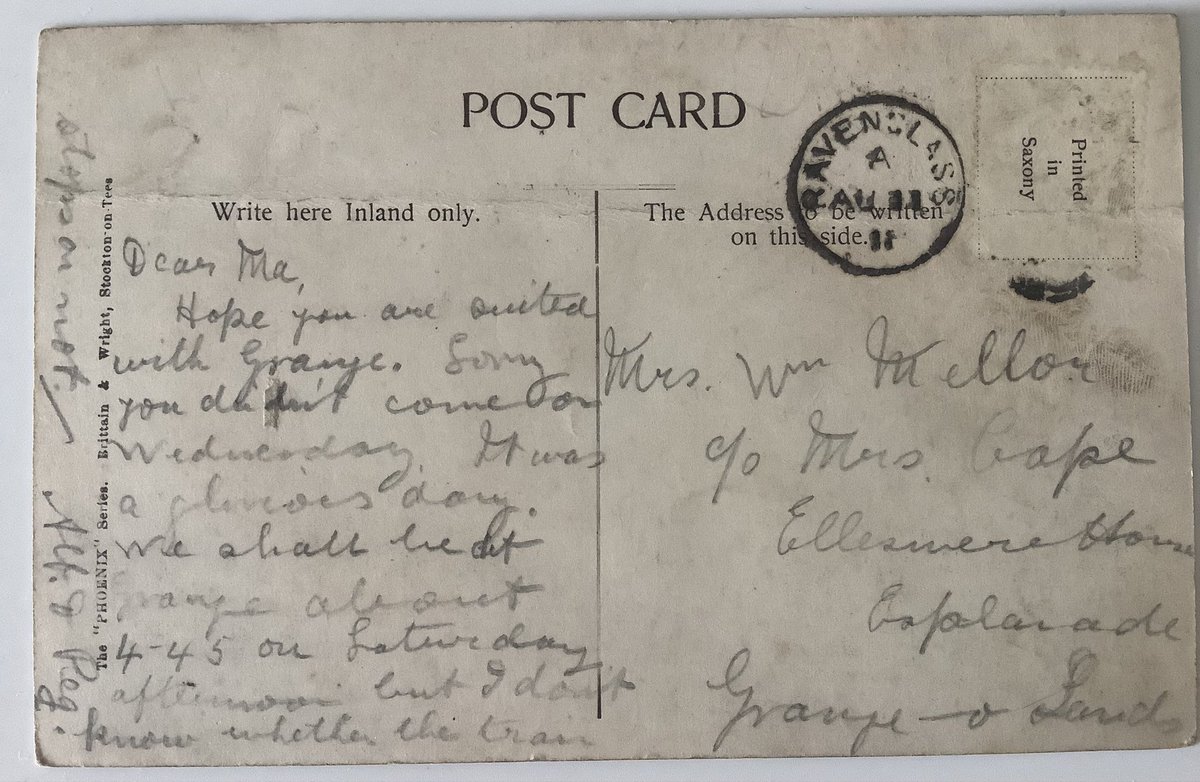 POST CARD
Printed
in
Saxony
RAVENGLASS
A
AU
11
Write here Inland only.
The Address to be written
on this side.
The "PHOENIX" Series. Brittain & Wright, Stockton-on-Tees
Dear Ma,
Hope you are suited
with Grange. Sorry
you didn't come on
Wednesday. It was
a glorious day.
We shall be at
Grange about
4-45 on Saturday
afternoon but I don't
know whether the train
stops or not.
Alf & Reg.
Mrs. Wm Mellor
c/o Mrs. Cape
Ellesmere House
Esplanade
Grange-o-Sands